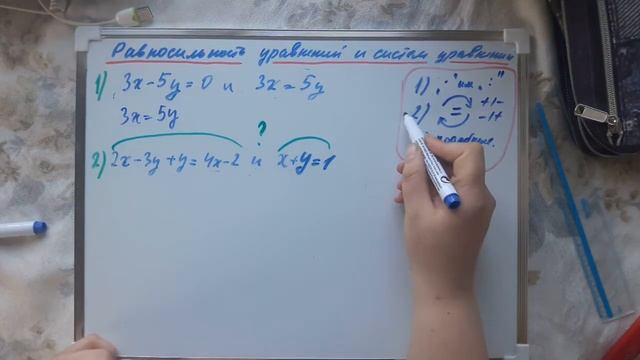 Равносильность уравнений и систем уравнений
1) 3x-5y=0 и 3x=5y
3x=5y
?
2) 2x-3y+y=4x-2 и x+y=1
1)
2) = +\-
-\+